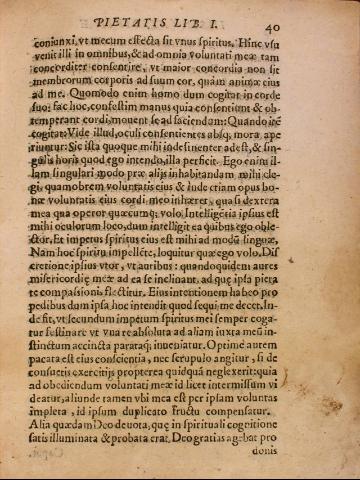 PIETATIS LIB. I. 40
coniunxi, vt mecum effecta sit vnus spiritus. Hinc vsu
venit illi in omnibus, & ad omnia voluntati meæ tam
concorditer consentire, vt maior concordia non sit
membrorum corporis ad suum cor, quàm animæ eius
ad me. Quomodo enim homo dum cogitat in corde
suo: fac hoc, confestim manus quia consentiunt & ob-
temperant cordi, mouent se ad faciendum: Quando ité
cogitat: Vide illud, oculi consentientes absq; mora ape
riuntur: Sic ista quoque mihi indesinenter adest, & sin-
gulis horis quod ego intendo, illa perficit. Ego enim il-
lam singulari modo præ alijs inhabitandam mihi ele-
gi, quamobrem voluntatis eius & inde criam opus bo-
næ voluntatis eius cordi meo inhæret, quasi dextera
mea qua operor quæcumq; volo. Intelligétia ipsius est
mihi oculorum loco, dum intelligit ea quibus ego oble-
ctor. Et impetus spiritus eius est mihi ad modú linguæ,
Nam hoc spiritu impelléte, loquitur quæ ego volo. Dis
cretione ipsius vtor, vt auribus: quandoquidem aures
misericordię meæ ad ea se inclinant, ad quę ipsa pieta
te compassionis flectitur. Eius intentionem habeo pro
pedibus dum ipsa hoc intendit quod sequi me decet. In-
de fit, vt secundum impetum spiritus mei semper coga-
tur festinare vt vna re absoluta ad aliam iuxta meū in-
stinctum accincta parataq; inueniatur. Optimè autem
pacata est eius conscientia, nec scrupulo angitur, si de
consuetis exercitijs propterea quidquā neglexerit: quia
ad obediendum voluntati meæ id licet intermissum vi
deatur, aliunde tamen vbi mea est per ipsam voluntas
impleta, id ipsum duplicato fructu compensatur.
Alia quædam Deo deuota, quę in spirituali cognitione
satis illuminata & probata erat, Deo gratias agebat pro
donis